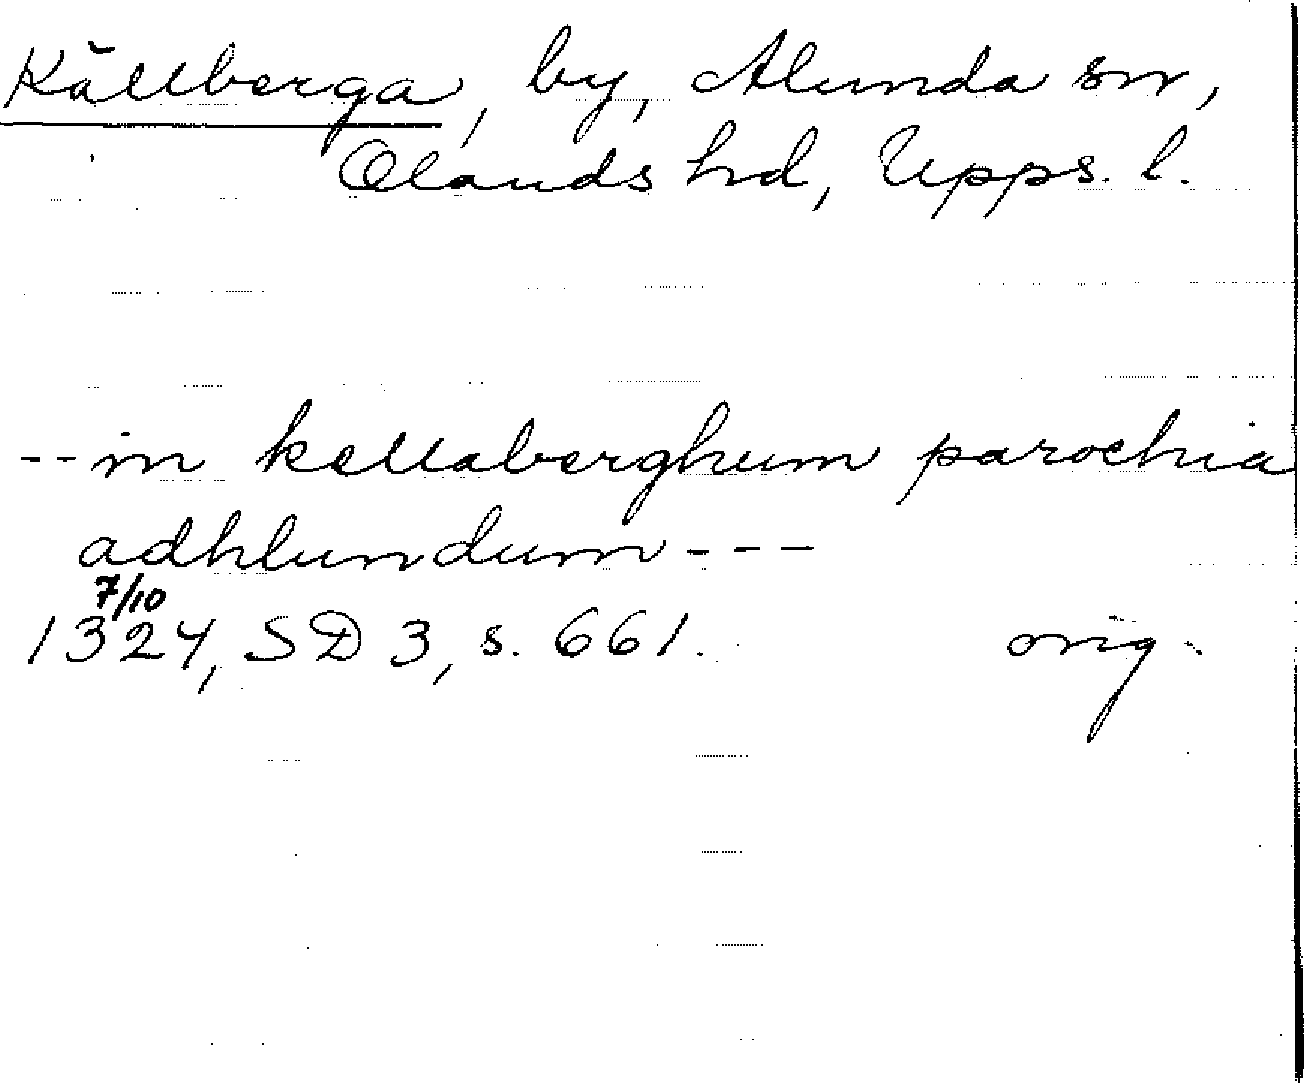 Källberga, by, Alunda sn,
Olands hd, Upps. l.
--in kellaberghum parochia
adhlundum---
7/10
1324, SD 3, s. 661. orig.